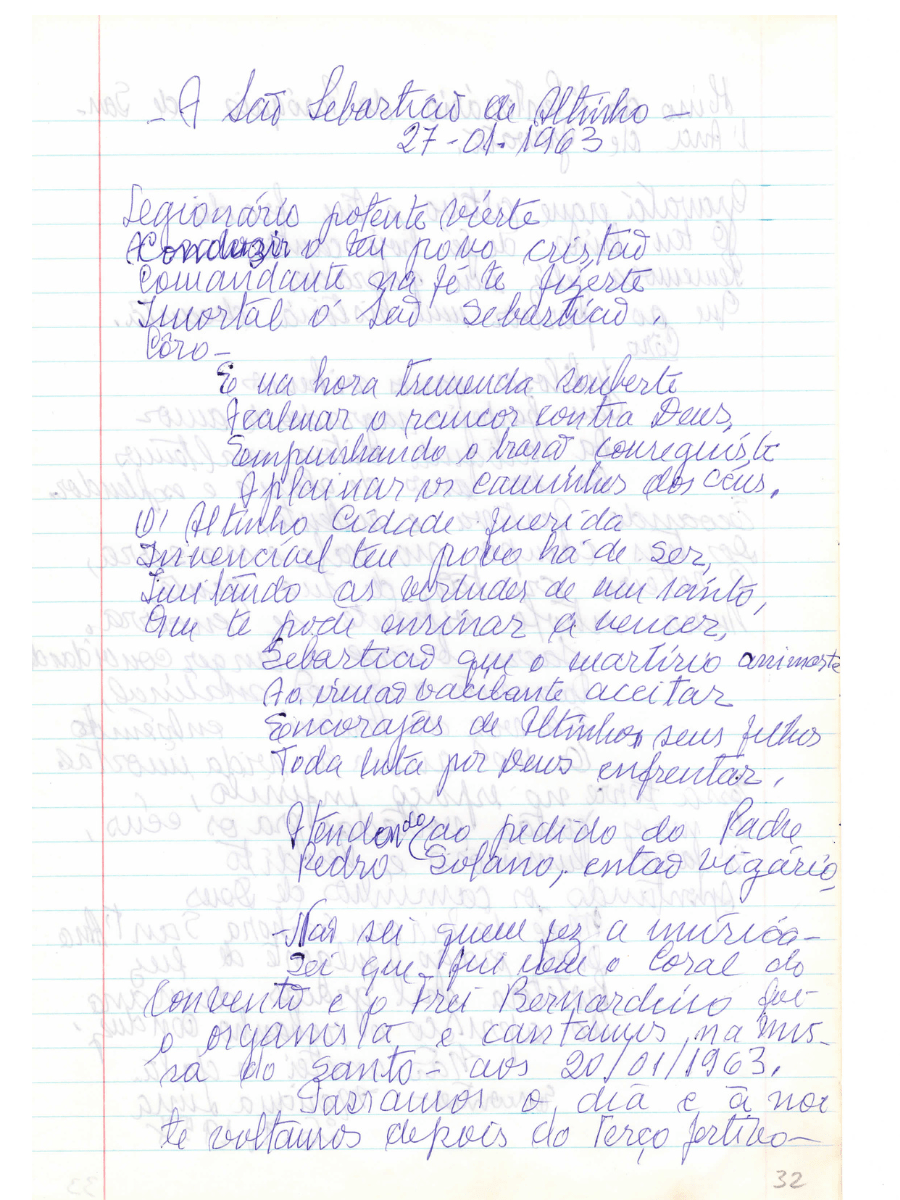 - A São Sebastião de Altinho -
27-01-1963
Legionário potente viéste
A Conduzir o teu povo cristão
Comandante na fé te fizeste
Imortal ó São Sebastião.
Côro -
E na hora tremenda soubeste
Acalmar o rancor contra Deus,
Empunhando o brasão conseguiste
Aplainar os caminhos dos céus.
Ó! Altinho Cidade querida
Invencível teu povo há de ser,
Imitando as virtudes de um santo,
Que te pode ensinar a vencer,
Sebastião que o martírio animaste
Ao irmão vacilante aceitar
Encorajas de Altinho, seus filhos
Toda luta por Deus enfrentar.
Atendendo ao pedido do Padre
Pedro Solano, então vigário,
- Não sei quem fez a música -
Sei que fui com o Coral do
Convento e o Frei Bernardino foi
o organista e cantamos na mis-
sa do Santo - aos 20/01/1963.
Passamos o dia e à noi
te voltamos depois do Terço festivo -
32